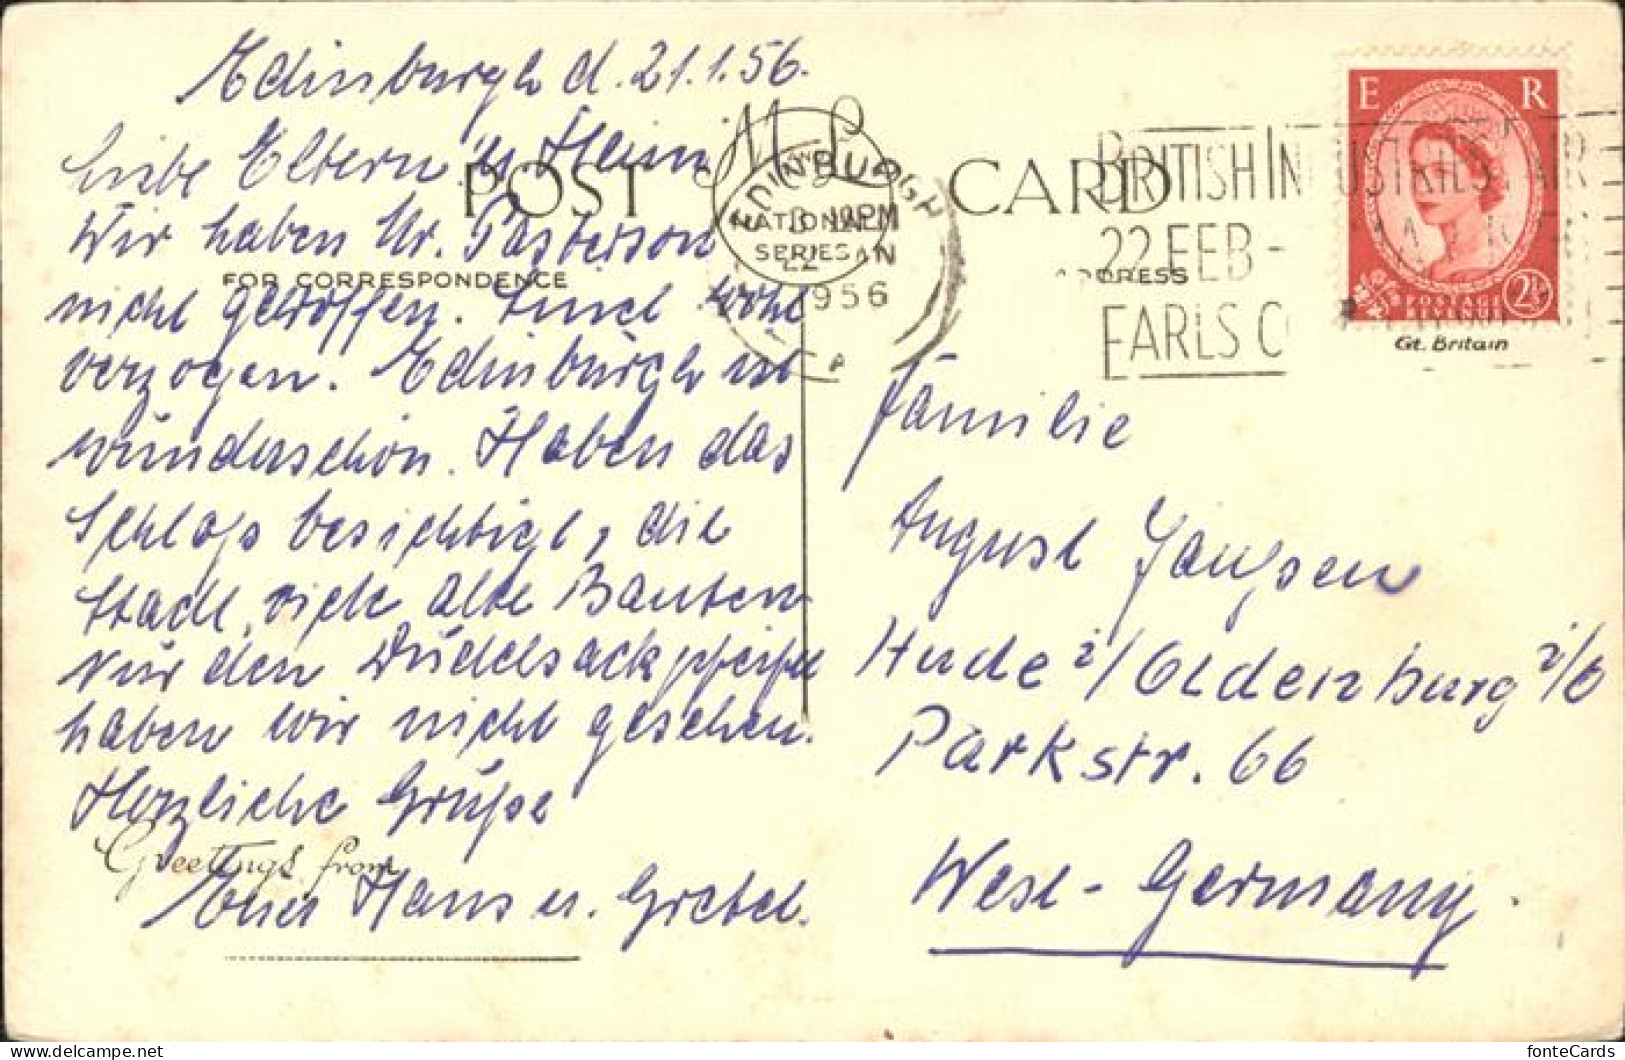 Edinburgh d. 21.1.56.
Liebe Eltern u. Heini
Wir haben Mr. Pasterson
nicht getroffen. Sind wohl
verzogen. Edinburgh ist
wunderschön. Haben das
Schloß besichtigt, die
Stadt, viele alte Bauten
Nur den Dudelsackpfeifer
haben wir nicht gesehen.
Herzliche Grüße
Greetings from
Euer Hans u. Gretel.
POST CARD
FOR CORRESPONDENCE
NATIONAL
SERIES
ADDRESS
EDINBURGH
PM
22 JAN
1956
BRITISH INDUSTRIES FAIR
22 FEB -
EARLS C
E R
POSTAGE
REVENUE
2½
Gt. Britain
Familie
August Janßen
Hude i/Oldenburg i/O
Parkstr. 66
West-Germany.
fonteCards